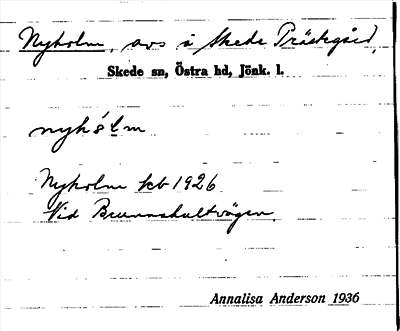 Nyholm, avs å Skede Prästegård,
Skede sn, Östra hd, Jönk. l.
nyhólm
Nyholm kb 1926
Vid Brunnshultvägen.
Annalisa Anderson 1936